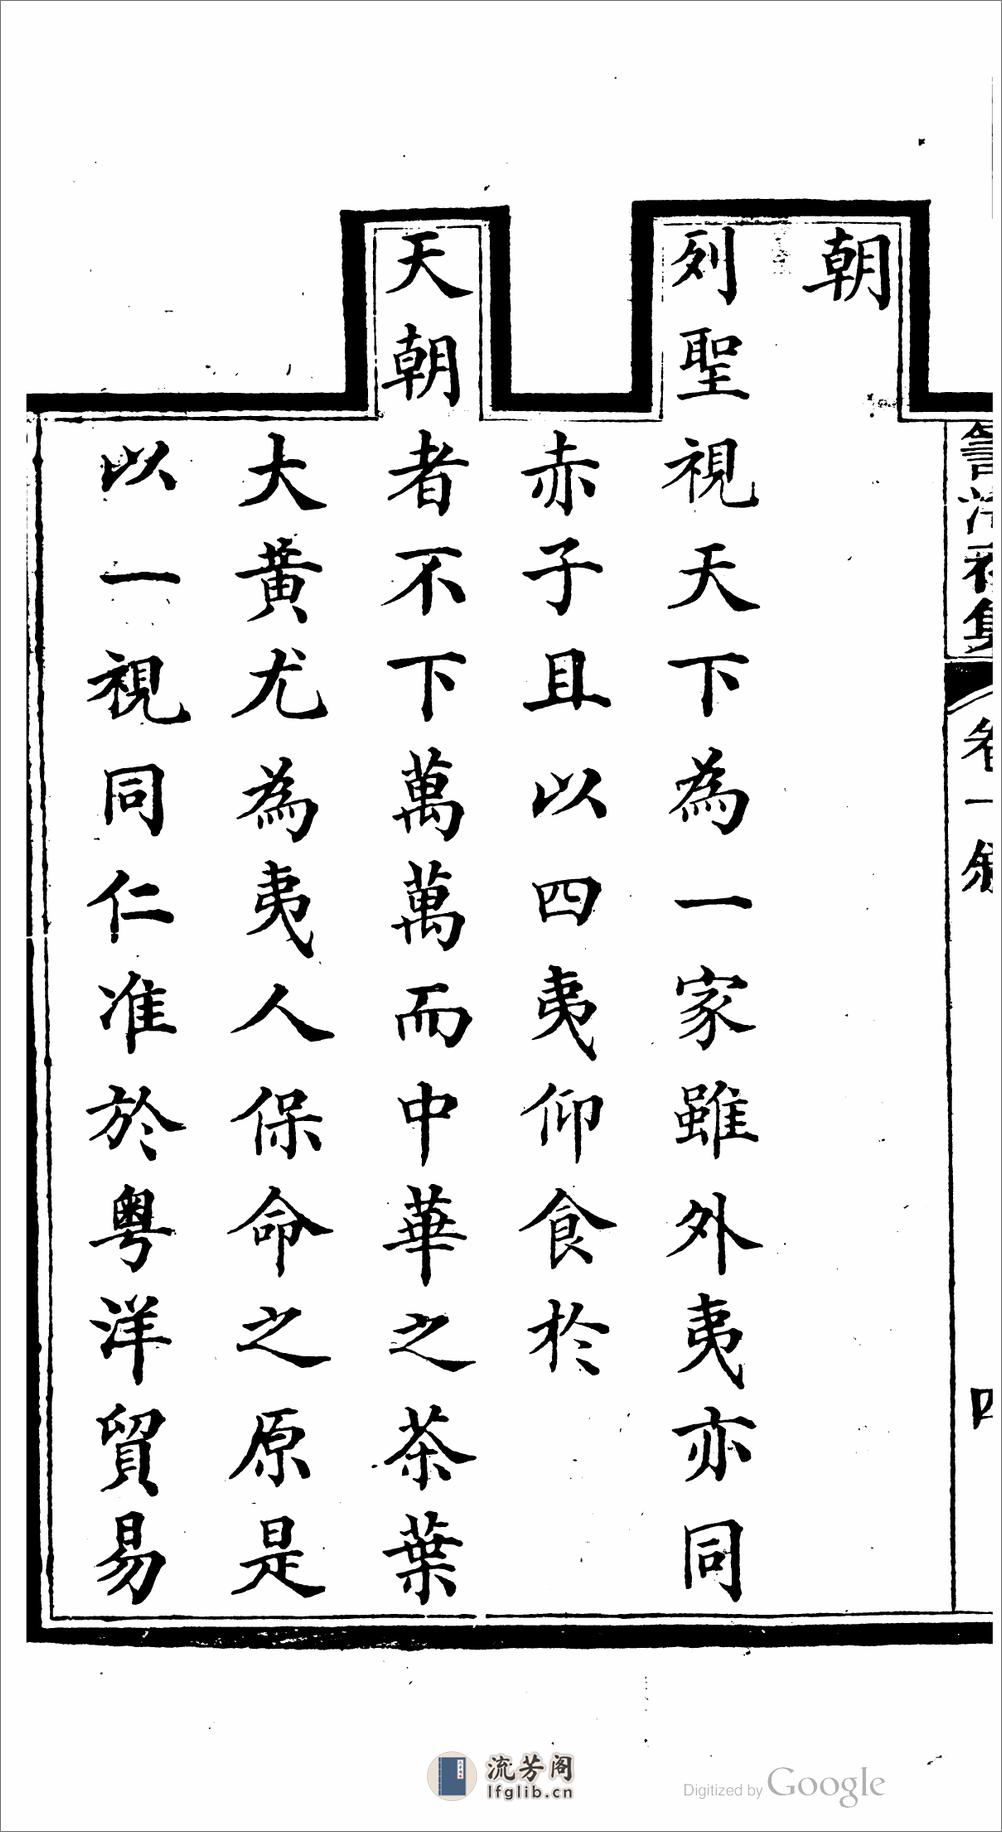 朝
列聖視天下為一家雖外夷亦同
赤子且以四夷仰食於
天朝者不下萬萬而中華之茶葉
大黃尤為夷人保命之原是
以一視同仁准於粵洋貿易
初集
卷一
四
流芳阁
lfglib.cn
Digitized by Google